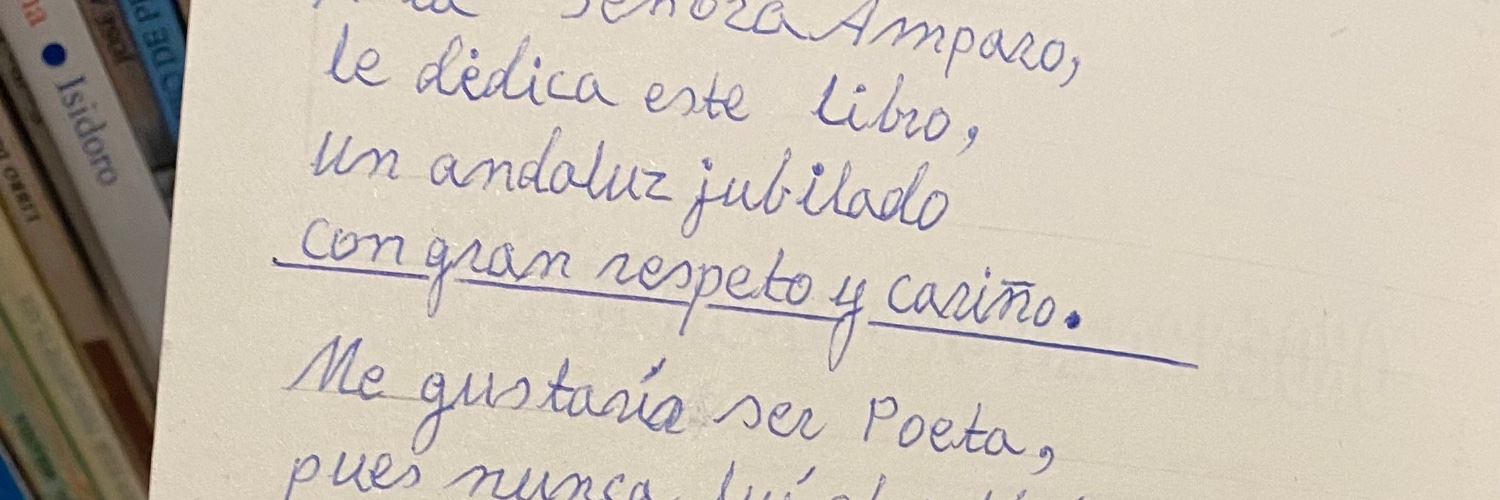 señora Amparo,
le dedica este libro,
un andaluz jubilado
con gran respeto y cariño.
Me gustaría ser Poeta,
pues nunca
Isidoro
LIBRO